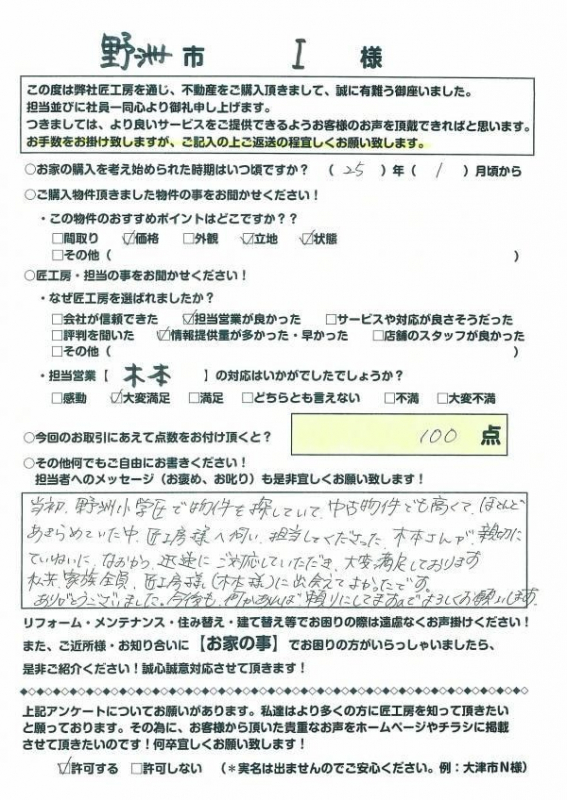 野洲市 I 様
この度は弊社匠工房を通じ、不動産をご購入頂きまして、誠に有難う御座いました。
担当並びに社員一同心より御礼申し上げます。
つきましては、より良いサービスをご提供できるようお客様のお声を頂戴できればと思います。
お手数をお掛け致しますが、ご記入の上ご返送の程宜しくお願い致します。
○お家の購入を考え始められた時期はいつ頃ですか? ( 25 )年( 1 )月頃から
○ご購入物件頂きました物件の事をお聞かせください!
・この物件のおすすめポイントはどこですか??
□間取り ☑価格 □外観 ☑立地 ☑状態
□その他( )
○匠工房・担当の事をお聞かせください!
・なぜ匠工房を選ばれましたか?
□会社が信頼できた ☑担当営業が良かった □サービスや対応が良さそうだった
□評判を聞いた ☑情報提供量が多かった・早かった □店舗のスタッフが良かった
□その他( )
・担当営業【 木本 】の対応はいかがでしたでしょうか?
□感動 ☑大変満足 □満足 □どちらとも言えない □不満 □大変不満
○今回のお取引にあえて点数をお付け頂くと? 100 点
○その他何でもご自由にお書きください!
担当者へのメッセージ(お褒め、お叱り)も是非宜しくお願い致します!
当初、野洲小学区で物件を探していて、中古物件でも高くて、ほとんど
あきらめていた中、匠工房様へ伺い、担当してくださった、木本さんが、親切に
ていねいに、なおかつ、迅速に ご対応していただき、大変満足しております
私共、家族全員、匠工房様(木本様)に出会えてよかったです。
ありがとうございました。今後も、何かあれば 頼りにしてますのでよろしくお願いします。
リフォーム・メンテナンス・住み替え・建て替え等でお困りの際は遠慮なくお声掛けください!
また、ご近所様・お知り合いに【お家の事】でお困りの方がいらっしゃいましたら、
是非ご紹介ください!誠心誠意対応させて頂きます!
上記アンケートについてお願いがあります。私達はより多くの方に匠工房を知って頂きたい
と願っております。その為に、お客様から頂いた貴重なお声をホームページやチラシに掲載
させて頂きたいのです!何卒宜しくお願い致します!
☑許可する □許可しない (*実名は出ませんのでご安心ください。例:大津市N様)